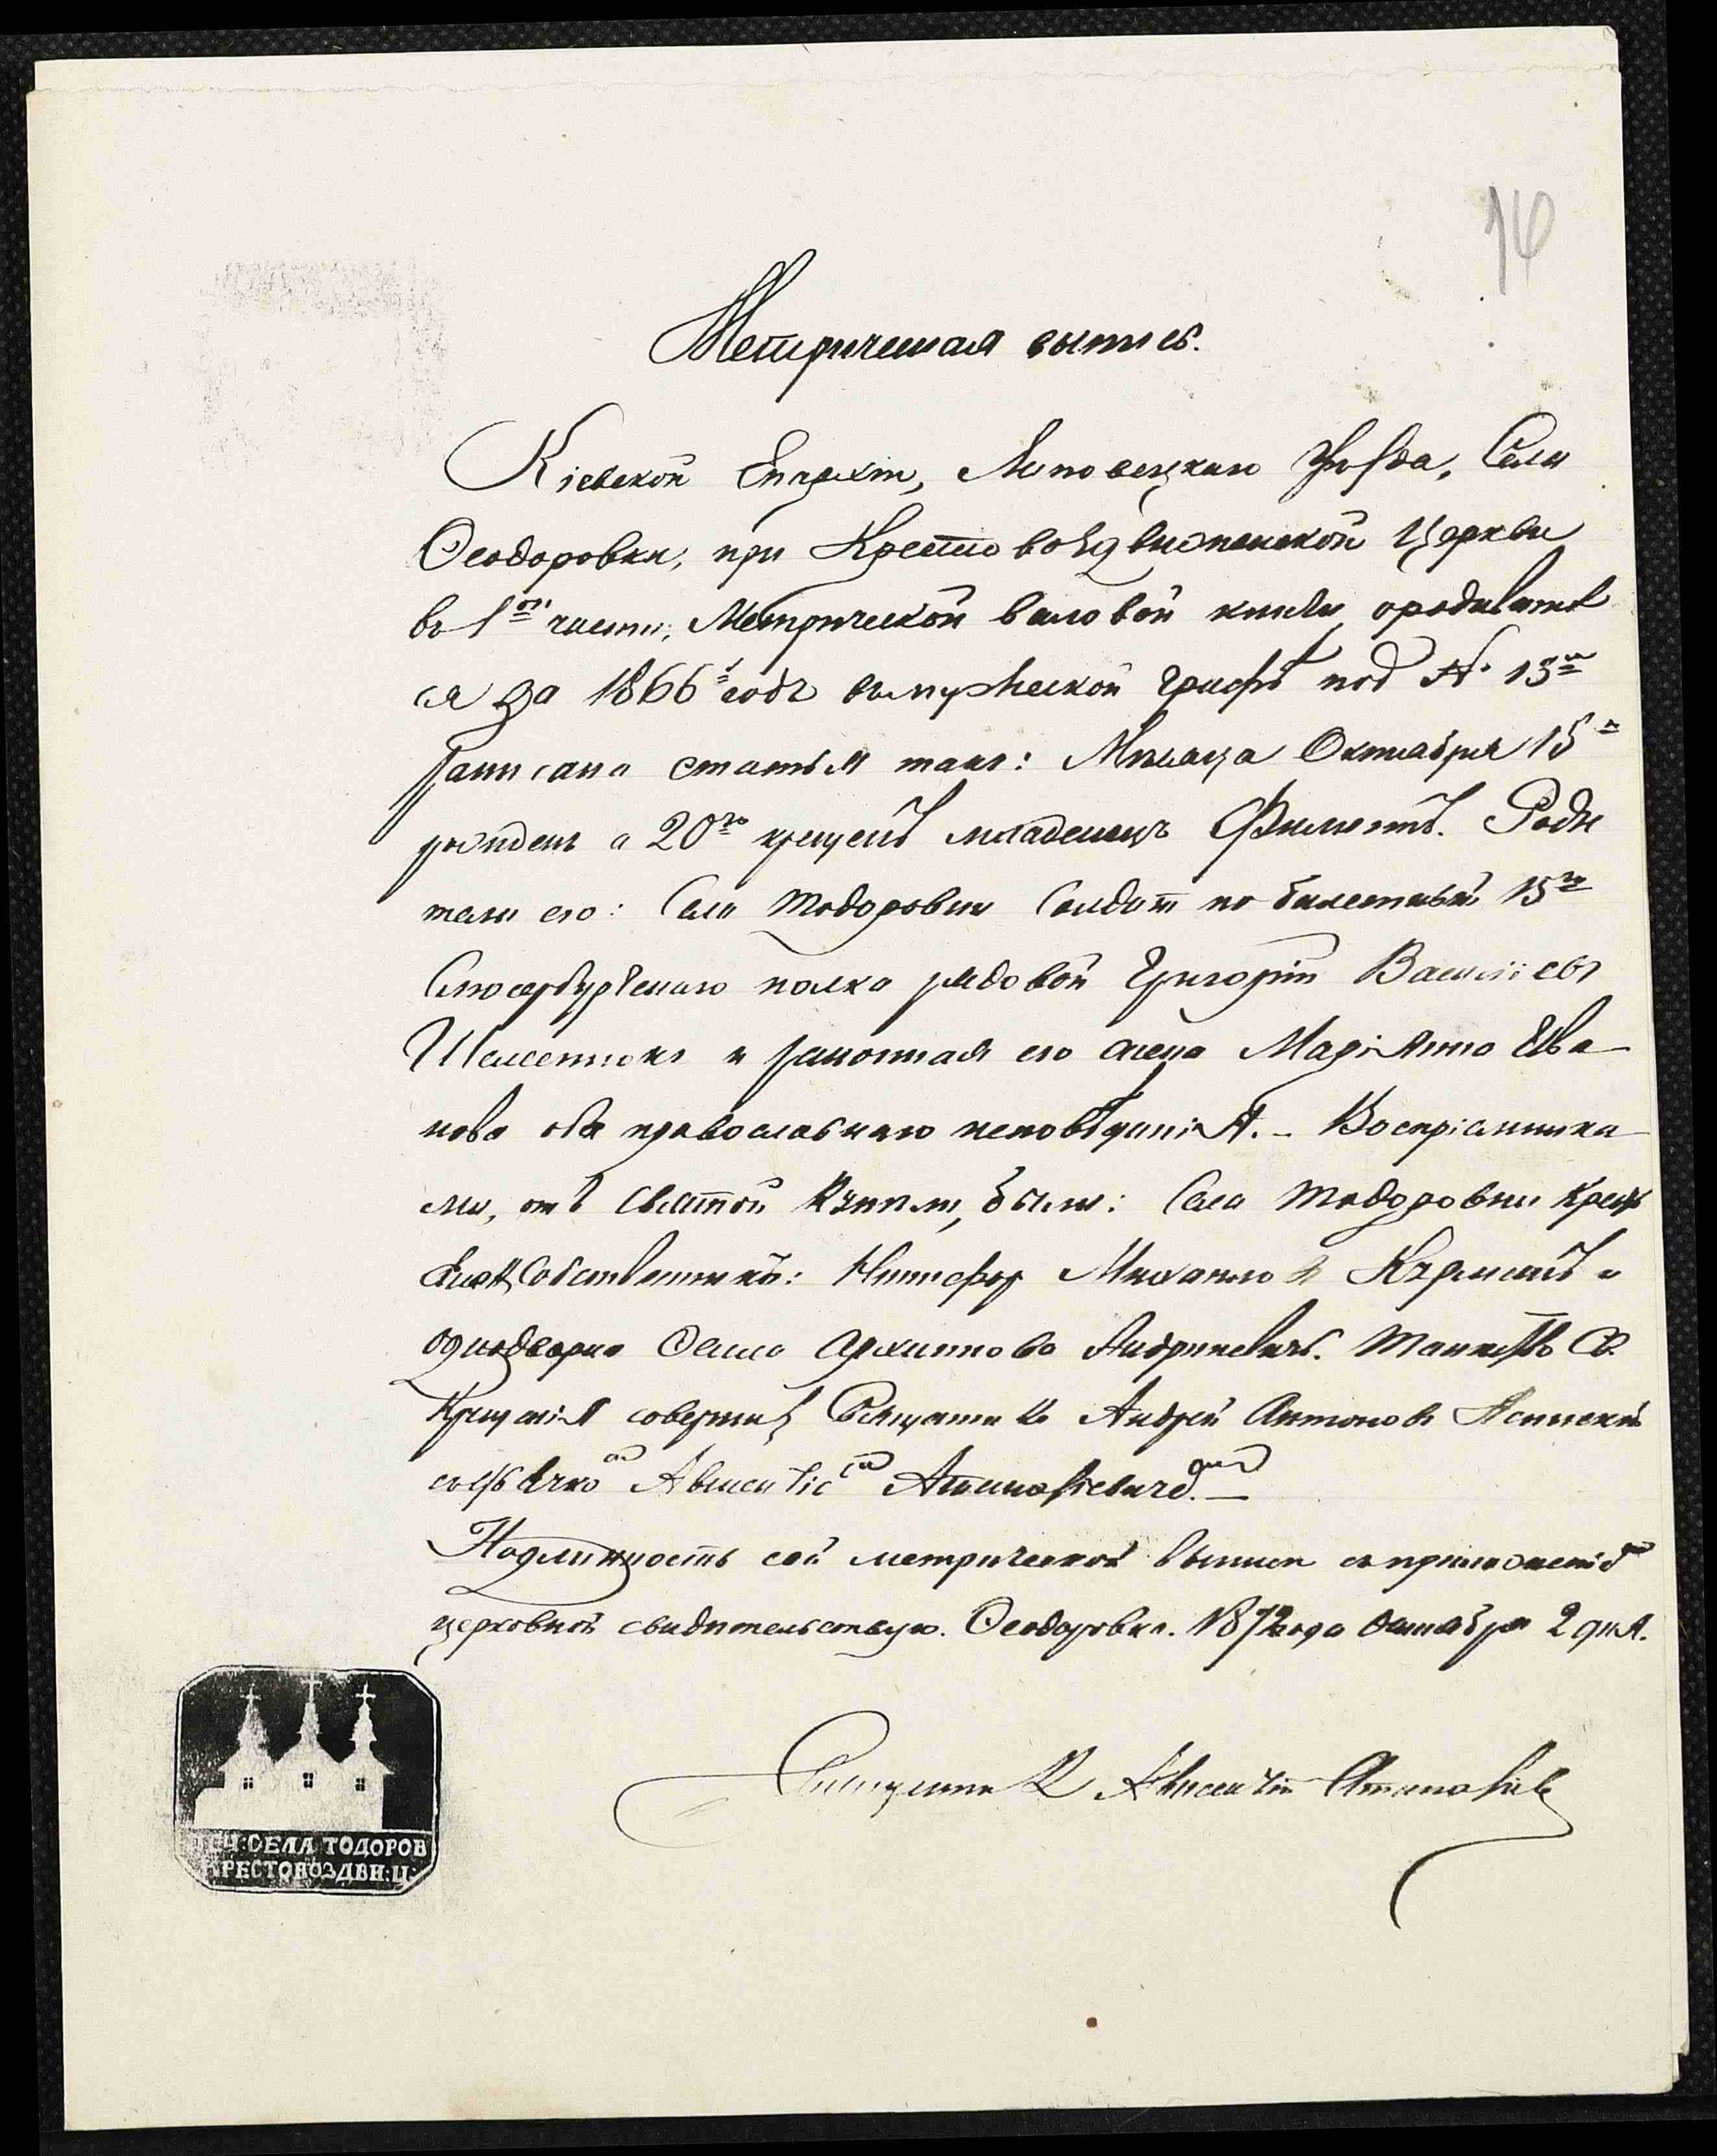 16
Метрическая выпись.
Кіевской Епархіи, Липовецкаго уѣзда, Села
Ѳеодоровки, при Крестовоздвиженской Церкви
въ 1ой части, Метрической шнуровой книги, о родивших
ся за 1866й годъ въ мужеской графѣ под № 13м
записано статья такъ: Мѣсяца Октября 15го
рожденъ а 20го крещенъ младенецъ Филиппъ. Роди
тели его: Села Тодоровки Солдат по билетный 15го
полка рядовой Григорій Васильевъ
и законная его жена Маріянна Ива
нова оба православнаго исповѣданія. - Воспріемника
ми, отъ святой Купели, были: Села Тодоровки Крест
Собственникъ: Никифор Михаилов и
однодворка Архипова Андріевичъ. Таинство Св.
Крещенія совершилъ Священникъ Андрей Антоновъ
Подлинность сей метрической выписи съ приложеніем
церковной свидѣтельствую. Ѳеодоровка. 1872 года Октября 2 дня.
Священник
ПЕЧ: СЕЛА ТОДОРОВ
КРЕСТОВОЗДВИ: Ц: